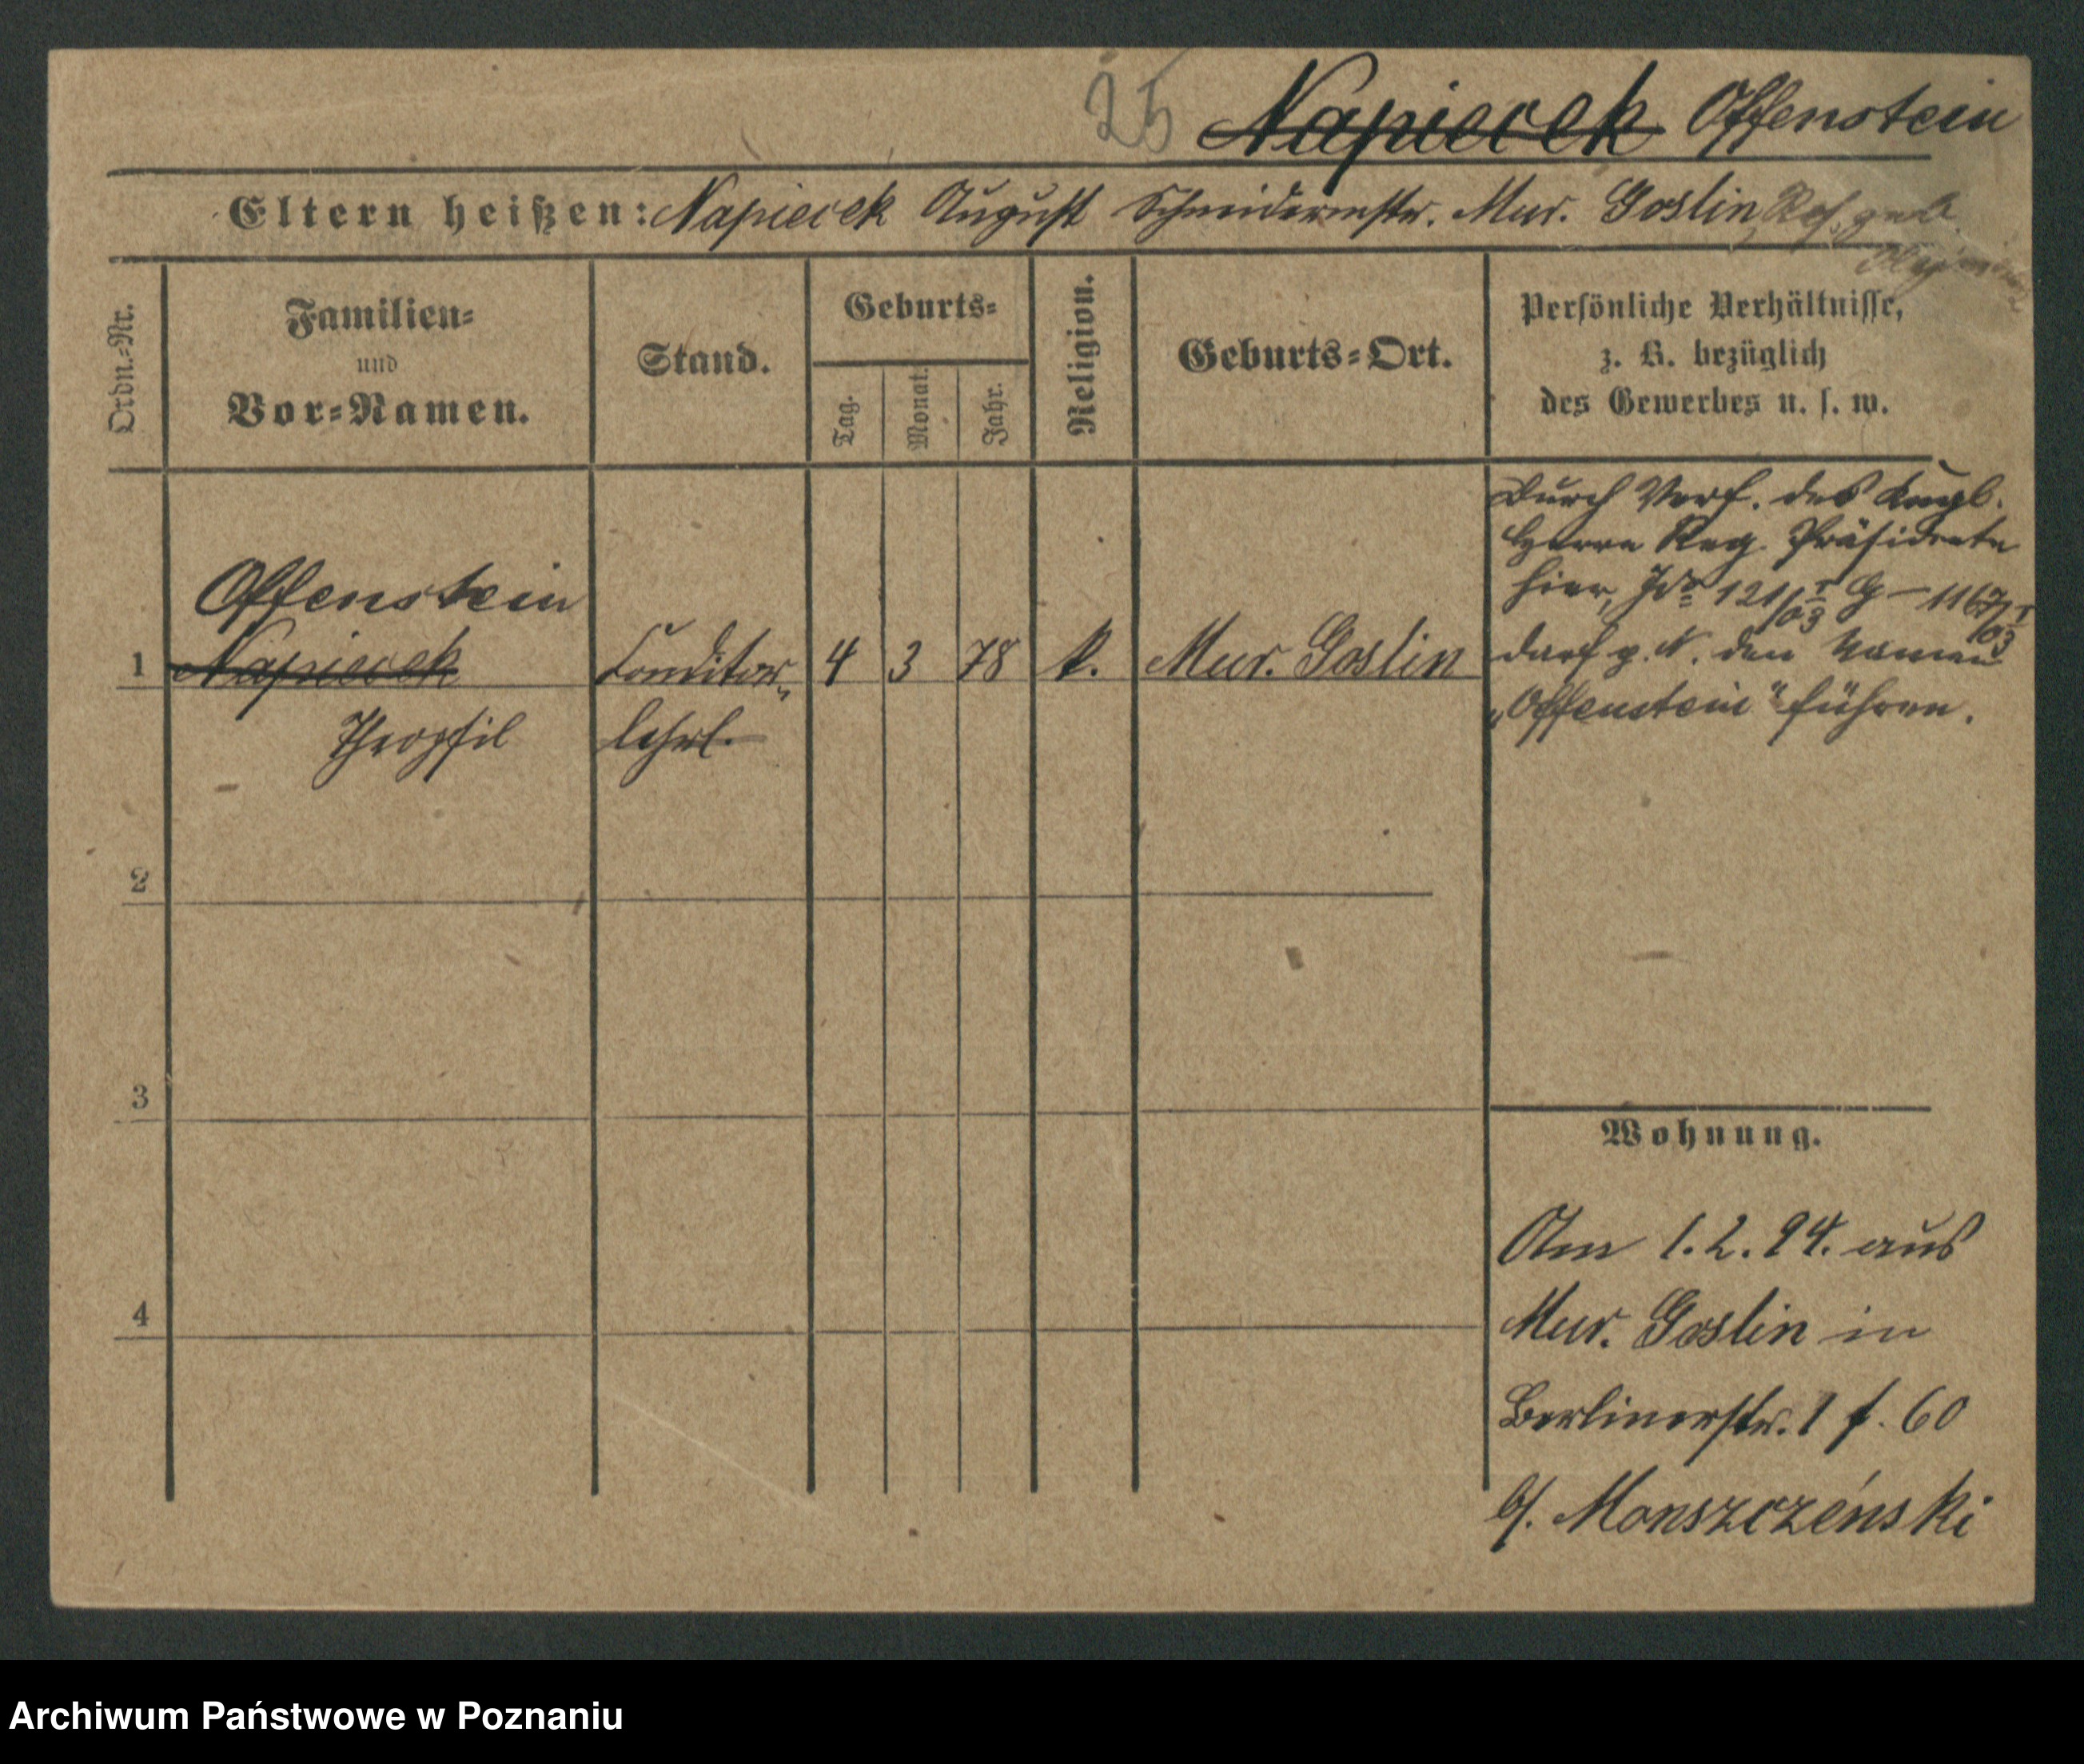 25 Napierek Offenstein
Eltern heißen: Napierek August Schneidermstr. Mur. Goslin, geb.
Ordn.=Nr.
Familien=
und
Vor=Namen.
Stand.
Geburts=
Tag.
Monat.
Jahr.
Religion.
Geburts=Ort.
Persönliche Verhältnisse,
z. B. bezüglich
des Gewerbes u. s. w.
Durch Verf. des Kngl.
Herrn Reg. Präsidenten
hier,
darf p. N. den Namen
„Offenstein" führen.
Offenstein
1 Napierek Conditor- 4 3 78 k. Mur. Goslin
Theophil lehrl.
2
3
4
Wohnung.
Am 1.2.94. aus
Mur. Goslin in
Berlinerstr. 1 f. 60
b/. Monszczénski
Archiwum Państwowe w Poznaniu